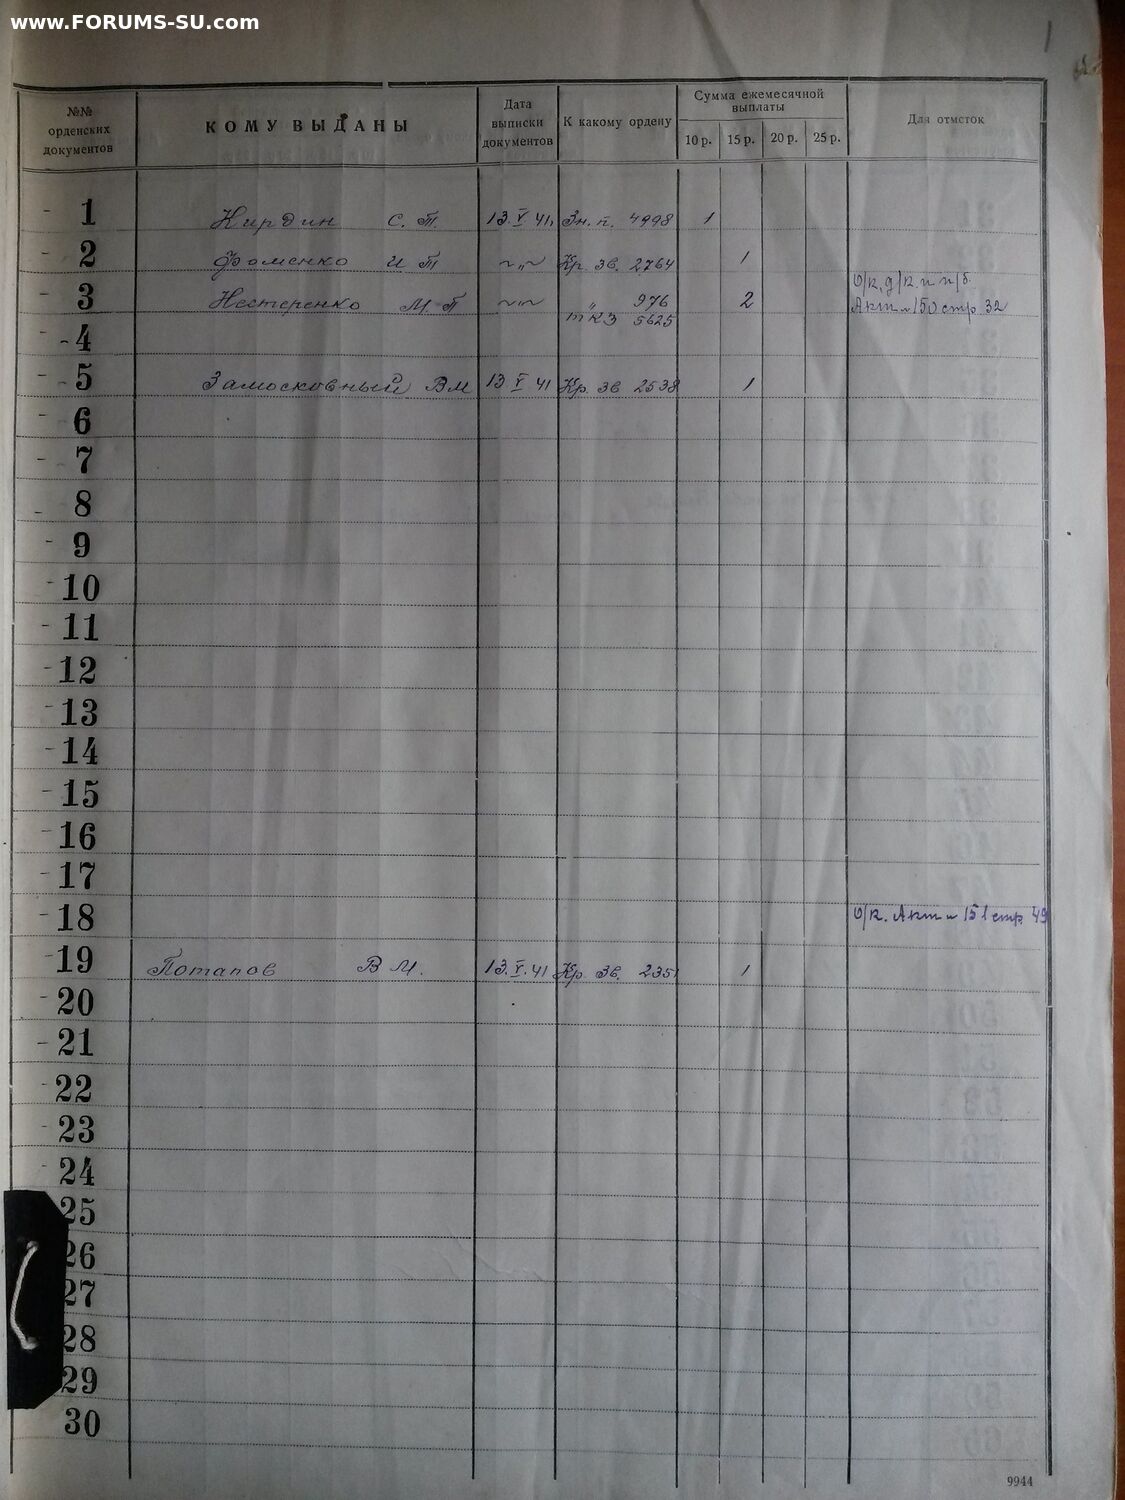 www.FORUMS-SU.com
№№ орденских документов КОМУ ВЫДАНЫ Дата выписки документов К какому ордену Сумма ежемесячной выплаты Для отметок
10 р. 15 р. 20 р. 25 р.
1 С. Т. 13 V 41 Зн. п. 4998 1
2 Фоменко И Т ~„~ Кр. Зв. 2764 1
3 Нестеренко М. П ~„~ „ 976 2
Акт № 150 стр 32
т КЗ 5625
4
5 Замосковный ВМ 13 V 41 Кр. Зв 2538 1
6
7
8
9
10
11
12
13
14
15
16
17
18 О/к. Акт № 151 стр 49
19 Потапов В М. 13. V. 41 Кр. Зв. 2351 1
20
21
22
23
24
25
26
27
28
29
30
9944